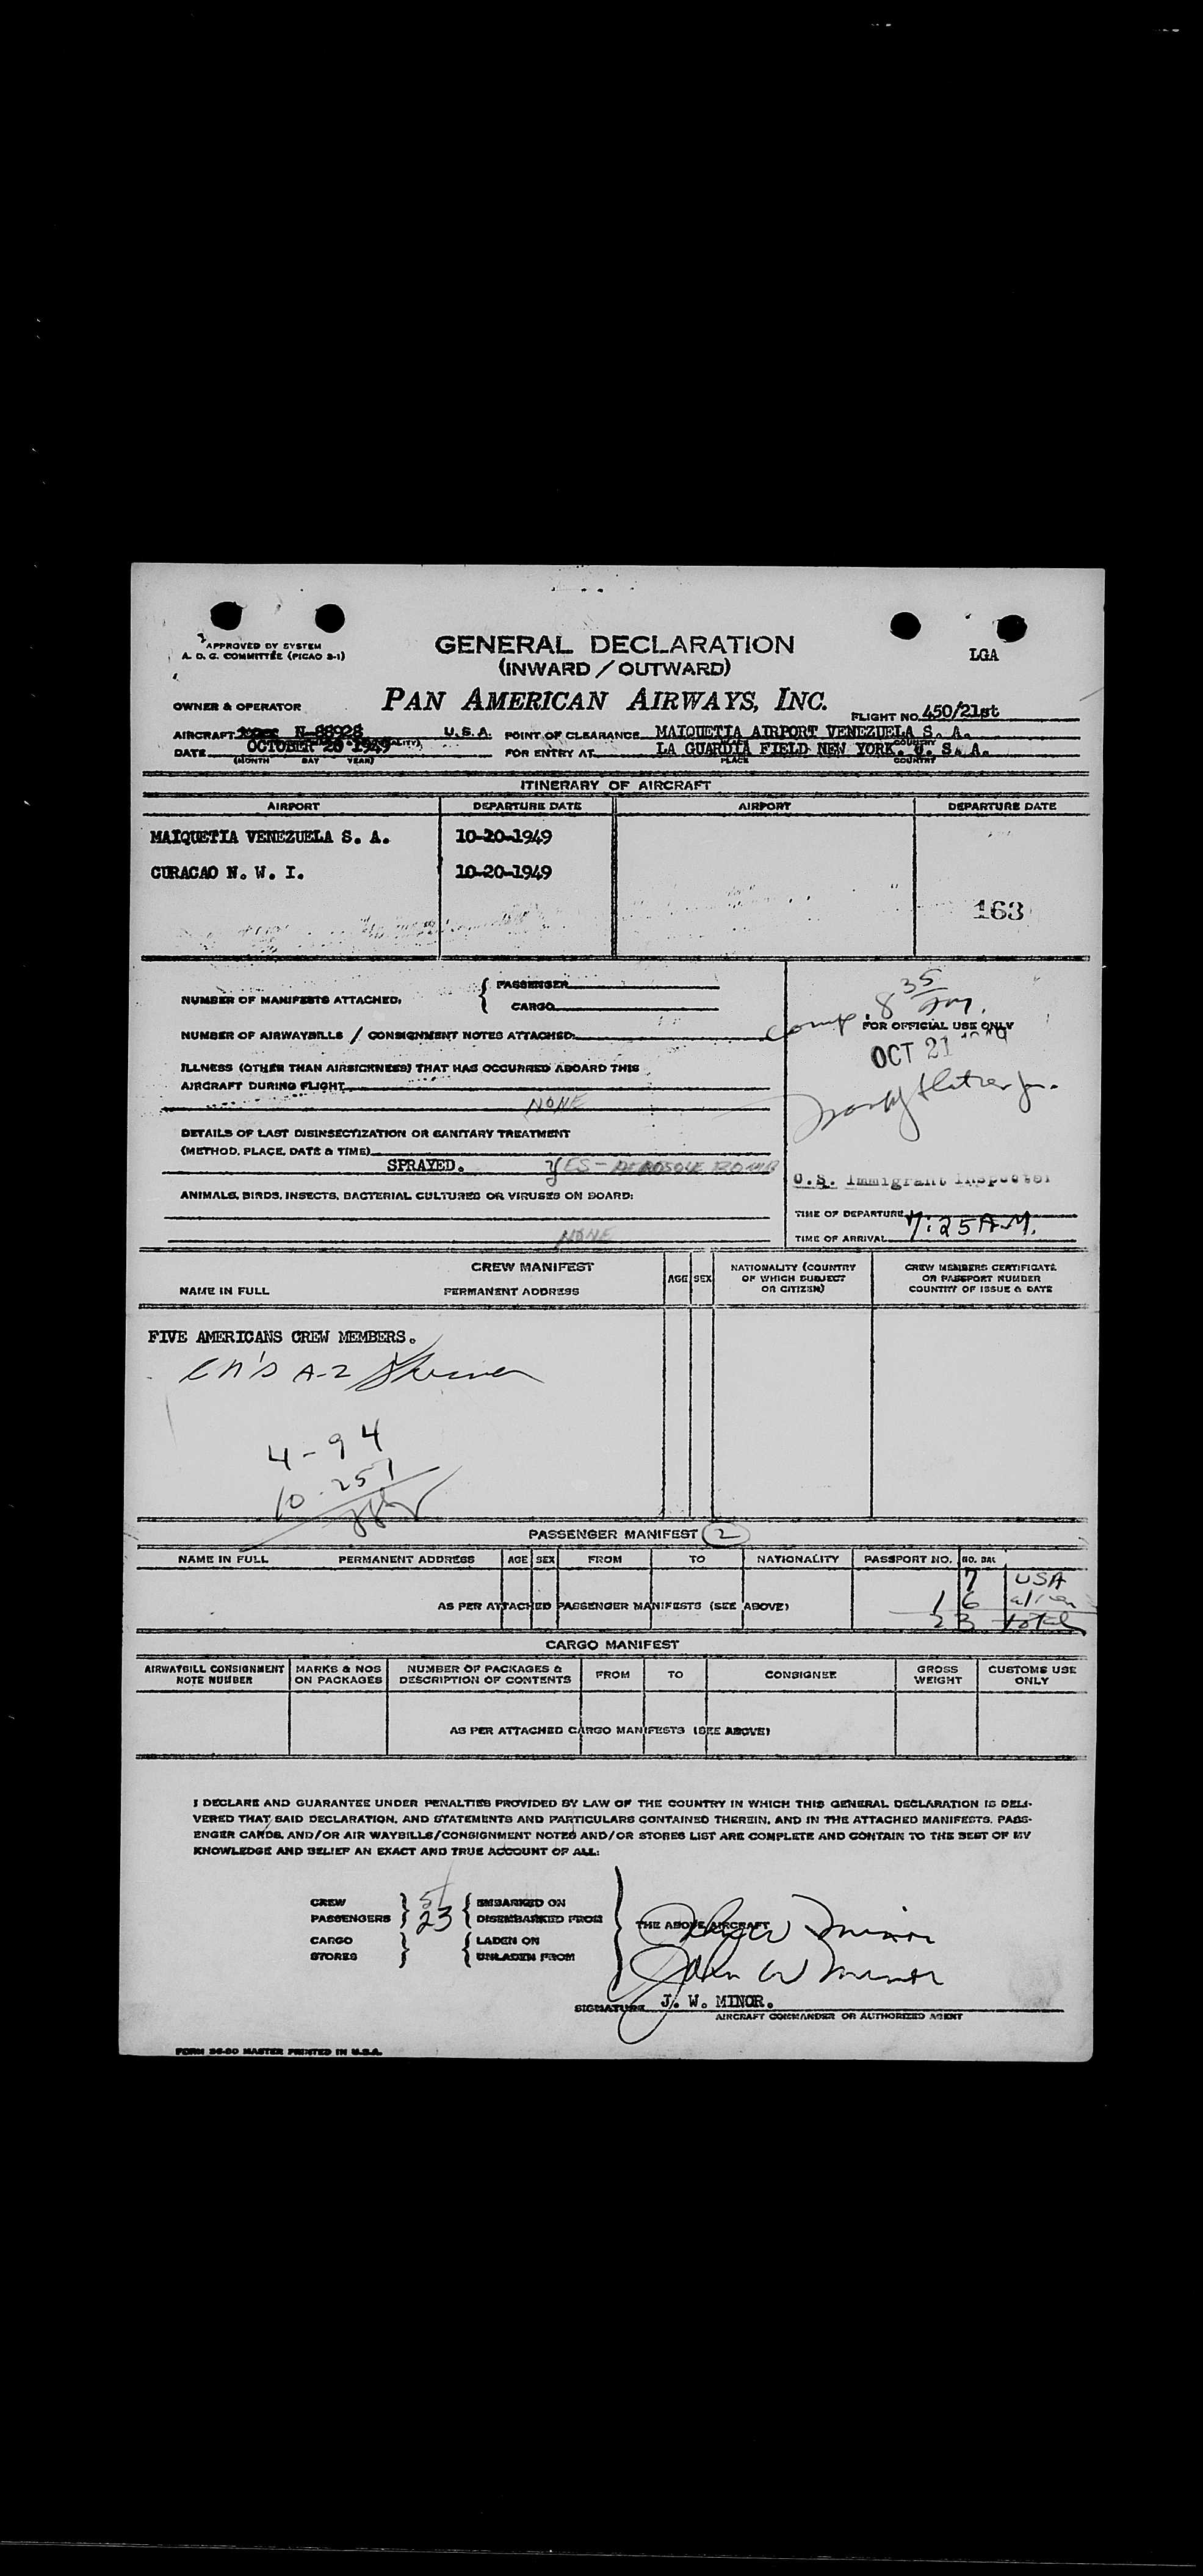 APPROVED BY SYSTEM
A. D. G. COMMITTEE (PICAO 2-1)
GENERAL DECLARATION
(INWARD / OUTWARD)
LGA
OWNER & OPERATOR
PAN AMERICAN AIRWAYS, INC.
FLIGHT NO. 450/21st
AIRCRAFT N-88928 U.S.A. POINT OF CLEARANCE MAIQUETIA AIRPORT VENEZUELA S. A.
DATE OCTOBER 20 1949 FOR ENTRY AT LA GUARDIA FIELD NEW YORK. U. S. A.
(MONTH DAY YEAR) PLACE COUNTRY
ITINERARY OF AIRCRAFT
AIRPORT DEPARTURE DATE AIRPORT DEPARTURE DATE
MAIQUETIA VENEZUELA S. A. 10-20-1949
CURACAO N. W. I. 10-20-1949
163
NUMBER OF MANIFESTS ATTACHED: { PASSENGER
CARGO
comp. 8 35 am.
NUMBER OF AIRWAYBILLS / CONSIGNMENT NOTES ATTACHED:
FOR OFFICIAL USE ONLY
OCT 21
ILLNESS (OTHER THAN AIRSICKNESS) THAT HAS OCCURRED ABOARD THIS
AIRCRAFT DURING FLIGHT
NONE
DETAILS OF LAST DISINSECTIZATION OR SANITARY TREATMENT
(METHOD, PLACE, DATE & TIME)
SPRAYED. YES - AEROSOLE BOMB
U.S. Immigrant Inspector
ANIMALS, BIRDS, INSECTS, BACTERIAL CULTURES OR VIRUSES ON BOARD:
NONE
TIME OF DEPARTURE
TIME OF ARRIVAL 7:25 A.M.
CREW MANIFEST
NAME IN FULL PERMANENT ADDRESS AGE SEX NATIONALITY (COUNTRY OF WHICH SUBJECT OR CITIZEN) CREW MEMBERS CERTIFICATE OR PASSPORT NUMBER COUNTRY OF ISSUE & DATE
FIVE AMERICANS CREW MEMBERS.
A-2
4-94
10-257
PASSENGER MANIFEST 2
NAME IN FULL PERMANENT ADDRESS AGE SEX FROM TO NATIONALITY PASSPORT NO. NO. BAG
7 USA
AS PER ATTACHED PASSENGER MANIFESTS (SEE ABOVE) 16 alien
23 total
CARGO MANIFEST
AIRWAYBILL CONSIGNMENT NOTE NUMBER MARKS & NOS ON PACKAGES NUMBER OF PACKAGES & DESCRIPTION OF CONTENTS FROM TO CONSIGNEE GROSS WEIGHT CUSTOMS USE ONLY
AS PER ATTACHED CARGO MANIFESTS (SEE ABOVE)
I DECLARE AND GUARANTEE UNDER PENALTIES PROVIDED BY LAW OF THE COUNTRY IN WHICH THIS GENERAL DECLARATION IS DELI-
VERED THAT SAID DECLARATION, AND STATEMENTS AND PARTICULARS CONTAINED THEREIN, AND IN THE ATTACHED MANIFESTS, PASS-
ENGER CARDS, AND/OR AIR WAYBILLS/CONSIGNMENT NOTES AND/OR STORES LIST ARE COMPLETE AND CONTAIN TO THE BEST OF MY
KNOWLEDGE AND BELIEF AN EXACT AND TRUE ACCOUNT OF ALL:
CREW 5 EMBARKED ON
PASSENGERS 23 DISEMBARKED FROM
THE ABOVE AIRCRAFT
CARGO LADEN ON
STORES UNLADEN FROM
John W Minor
John W Minor
SIGNATURE J. W. MINOR.
AIRCRAFT COMMANDER OR AUTHORIZED AGENT
FORM 26-60 MASTER PRINTED IN U.S.A.